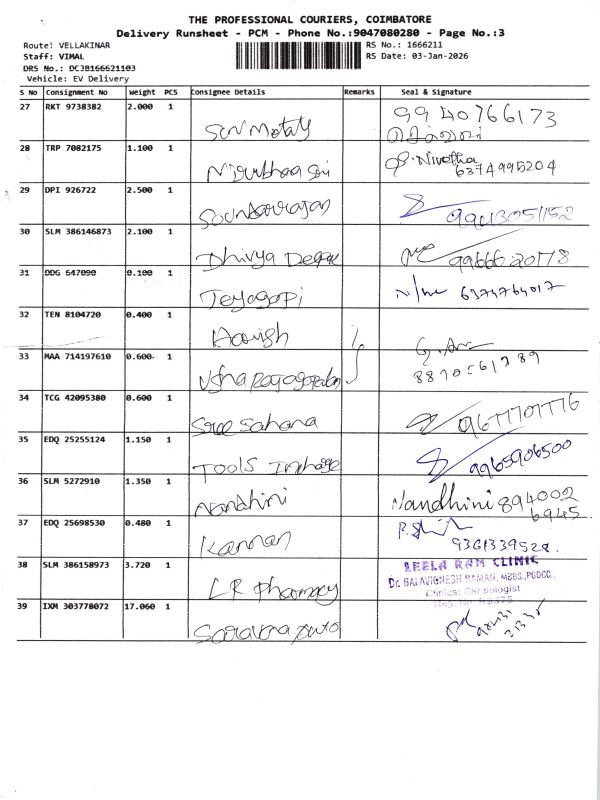 THE PROFESSIONAL COURIERS, COIMBATORE
Delivery Runsheet - PCM - Phone No.:9047080280 - Page No.:3
Route: VELLAKINAR
RS No.: 1666211
Staff: VIMAL
RS Date: 03-Jan-2026
DRS No.: DCJB166621103
Vehicle: EV Delivery
S No Consignment No Weight PCS Consignee Details Remarks Seal & Signature
27 RKT 9738382 2.000 1 9940766173
28 TRP 7082175 1.100 1 Nivetha
6374995204
29 DPI 926722 2.500 1 Soundarrajan
30 SLM 386146873 2.100 1 Dhivya Deepak
31 DDG 647090 0.100 1 Jeyagopi
32 TEN 8104720 0.400 1 Harish
33 MAA 714197610 0.600 1 Usha Rajagopalan
34 TCG 42095380 0.600 1 Sree Sahana 9677701776
35 EDQ 25255124 1.150 1 TOOLS 9965906500
36 SLM 5272910 1.350 1 Nandhini Nandhini 894002
6945
37 EDQ 25698530 0.480 1 Kannan
9361339529
38 SLM 386158973 3.720 1 LR Pharmacy LEELA RAM CLINIC
Dr. BALAVIGNESH RAMAN, MBBS.,PGDCC.,
Clinical Cardiologist
39 IXM 303778072 17.060 1 Saravana Auto